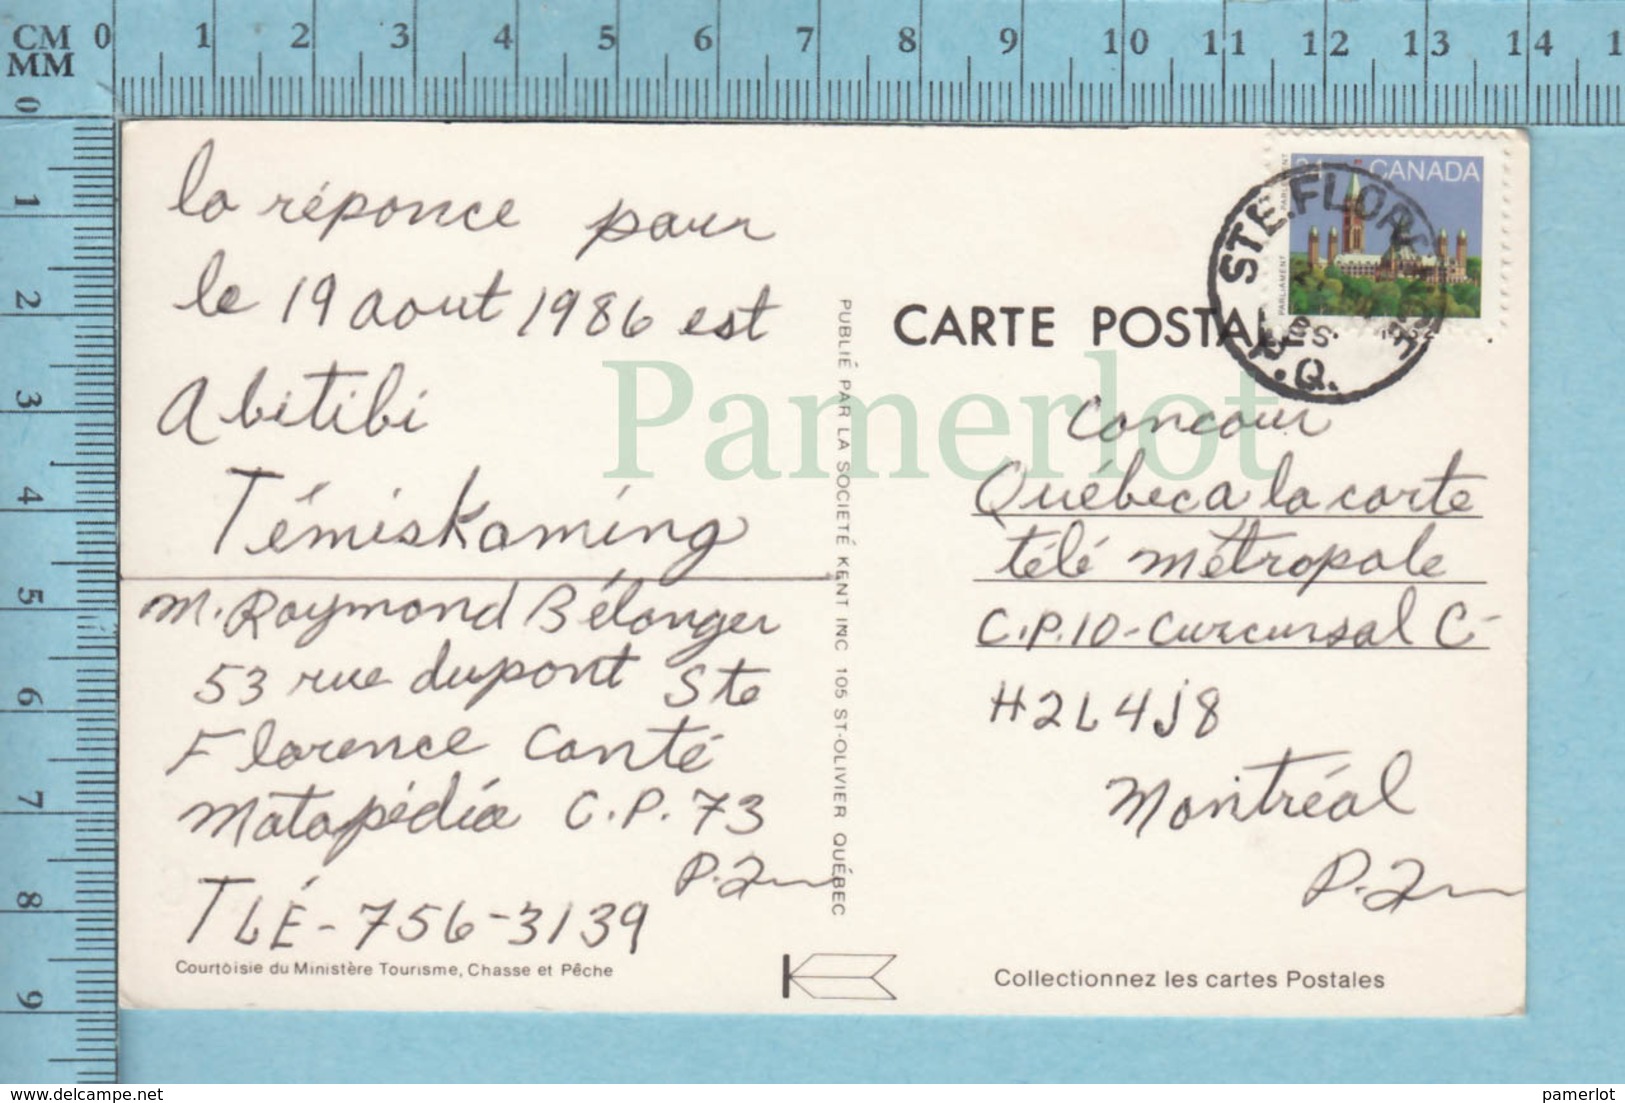 CM 0 1 2 3 4 5 6 7 8 9 10 11 12 13 14 1
MM
0 1 2 3 4 5 6 7 8 9
la réponce pour
le 19 aout 1986 est
Abitibi
Témiskaming
M. Raymond Bélanger
53 rue dupont Ste
Florence Conté
Matapédia C.P. 73
P.Q
TLÉ-756-3139
Courtoisie du Ministère Tourisme, Chasse et Pêche
PUBLIÉ PAR LA SOCIETÉ KENT INC 105 ST-OLIVIER QUÉBEC
Pamerlot
CARTE POSTALE
CANADA
PARLEMENT
PARLIAMENT
STE.FLO
P.Q.
Concour
Québec a la carte
télé Métropole
C.P.10-Curcursal C-
H2L4J8
Montréal
P.Q
Collectionnez les cartes Postales
delcampe.net
pamerlot